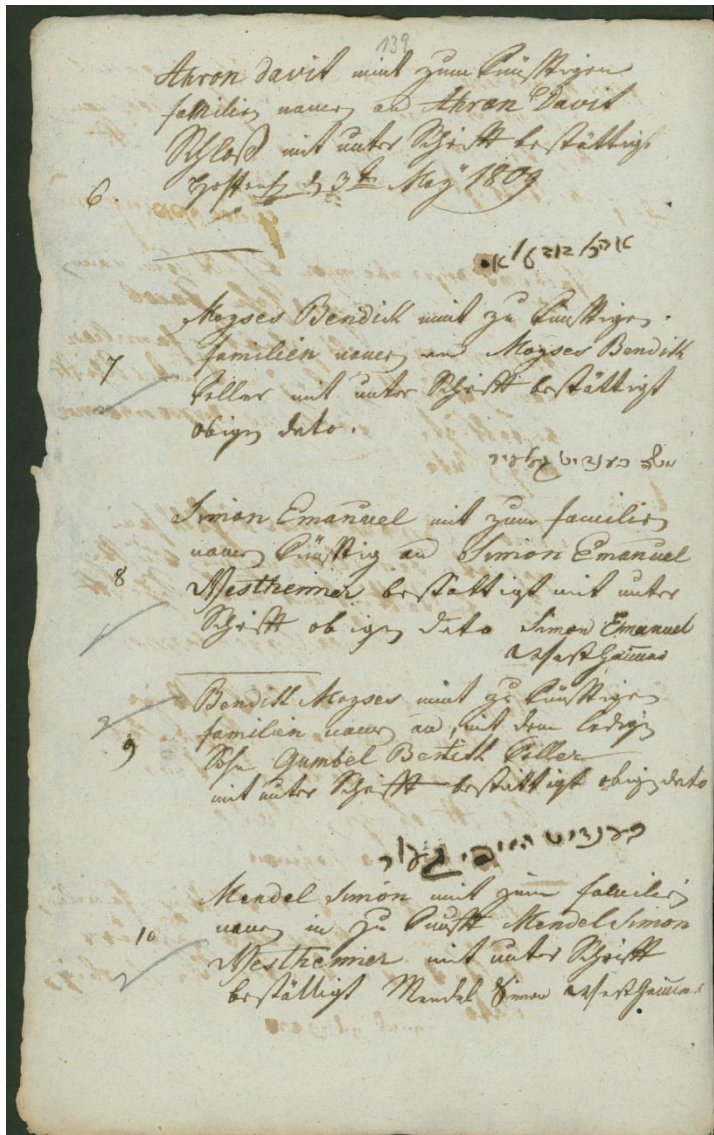 139
Ahron davit nimt zum künftigen
familien namen an Ahron Davit
Schloß mit unter Schrift bestättigt
6. den 3t May 1809
Moyses Bendith nimt zu künftigen
7 familien namen an Moyses Bendith
mit unter Schrift bestättigt
obigen dato.
משה בענדיט
Simon Emanuel nimt zum familien
namen künftig an Simon Emanuel
8 Westheimer bestättigt mit unter
Schrift obigen dato Simon Emanuel
Westheimer
Bendith Moyses nimt zu künftigen
familien namen an, mit dem ledigen
9 Sohn Gumbel
mit unter Schrifft bestättigt obigen dato
בענדיט
Mendel Simon nimt zum familien
10 namen in zu kunft Mendel Simon
Westheimer mit unter Schrifft
bestättigt Mendel Simon Westheimer